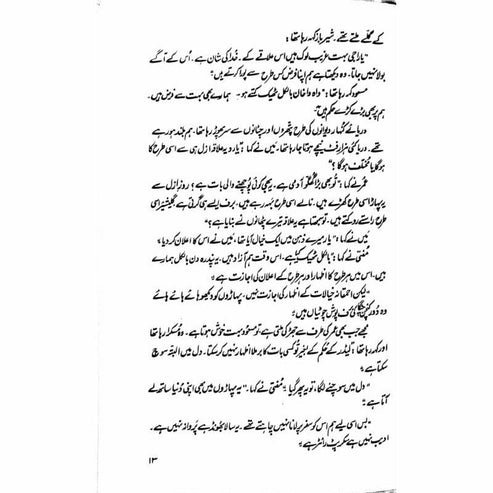 کے محلے ملتے تھے۔ شیر باز کہہ رہا تھا:
"یارا جی بہت غریب لوگ ہیں اس علاقے کے۔ خدا کی شان ہے۔ اُس کے آگے
بولا نہیں جاتا۔ وہ دیکھتا ہے ہم اپنا فرض کس طرح سے پورا کرتے ہیں"
مسعود کہہ رہا تھا: "واہ واہ خان بالکل ٹھیک کہتے ہو۔ ہمارے بھی بہت سے فرض ہیں۔
ہم پر بھی بڑے کڑے حکم ہیں"
دریائے کنہار دیوانوں کی طرح پتھروں اور چٹانوں سے سر پھوڑ رہا تھا۔ ہم بلند ہو رہے
تھے۔ دریا کئی ہزار فٹ نیچے ہوتا جا رہا تھا۔ میں نے کہا: "یار و یہ علاقہ ازل ہی سے اسی طرح کا
ہو گا یا مختلف ہو گا؟"
عمر نے کہا: "تُو بھی بڑا گھگّو آدمی ہے۔ یہ بھی کوئی پوچھنے والی بات ہے؟ روزِ ازل سے
یہ پہاڑ اسی طرح کھڑے ہیں۔ نالے اسی طرح بہہ رہے ہیں۔ برف ایسے ہی گرتی ہے، گلیشیر اسی
طرح راستے روکتے ہیں۔ تو سمجھتا ہے یہ علاقہ تیرے پٹھانوں نے بنایا ہے؟"
میں نے کہا: "یار میرے ذہن میں ایک خیال آیا تھا، میں نے اس کا اعلان کر دیا"
مُفتی نے کہا: "بالکل ٹھیک کیا ہے۔ اس وقت ہم آزاد ہیں۔ یہ پندرہ دن بالکل ہمارے
ہیں۔ اس میں ہر طرح کا اظہار اور ہر طرح کے اعلان کی اجازت ہے"
"لیکن احمقانہ خیالات کے اظہار کی اجازت نہیں۔ پہاڑوں کو دیکھو ہائے ہائے ہائے
وہ دُور کی کف پوش چوٹیاں ہیں"
مجھے جب بھی عمر کی طرف سے جھڑکی ملتی ہے تو مسعود بہت خوش ہوتا ہے۔ وہ مسکرا رہا تھا
اور کہہ رہا تھا: "لیڈر کے حکم کے بغیر تو کسی بات کا برملا اظہار نہیں کر سکتا۔ دل میں البتہ سوچ
سکتا ہے"
"دل میں سوچنے لگا، تو یہ پھر گیا" مُفتی نے کہا۔ "یہ پہاڑوں میں بھی اپنی دُنیا ساتھ لے
آتا ہے"
"بس اسی لیے ہم اس کو سفر پر لانا نہیں چاہتے تھے۔ یہ سالا بھونڈ ہے پروانہ نہیں ہے۔
ادیب نہیں ہے سکرپٹ رائٹر ہے"
۱۳